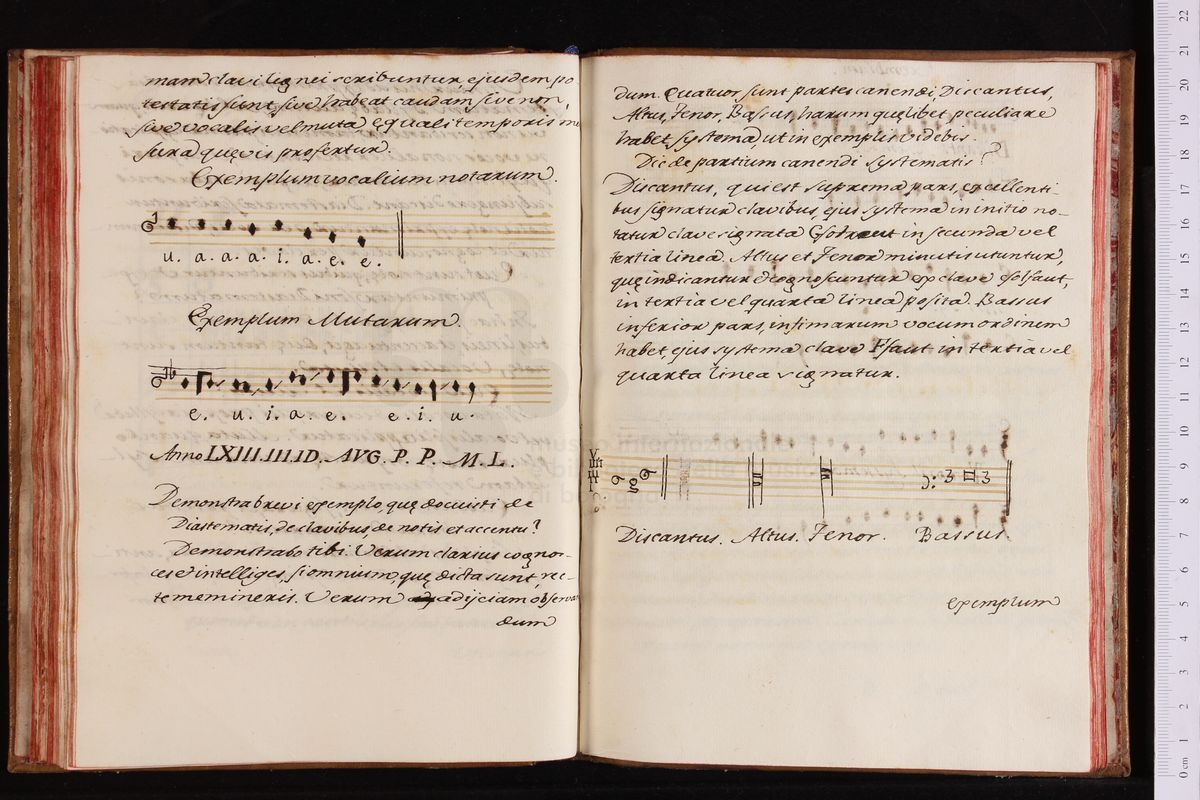 mam clavi lignei scribuntur, ejusdem po
testatis sunt, sive habeat caudam sive non,
sive vocalis vel muta ęquali temporis
sura quęvis profertur.
Exemplum vocalium notarum.
u. a. a. a. i. a. e. e.
Exemplum Mutarum.
e. u. i. a. e. e. i. u.
Anno LXIII.III.ID. AVG. P. P. M. L.
Demonstra brevi exemplo quę docuisti de
Diastematis, de clavibus, de notis et accentu?
Demonstrabo tibi. Verum clarius cognos-
ces & intelliges, si omnium, quę dicta sunt, rec-
te memineris. Verum adijciam observan
dum
dum. Quatuor sunt partes canendi, Discantus,
Altus, Tenor, Bassus, harum quęlibet peculiare
habet systema ut in exemplis videbis.
Dic de partium canendi systematis?
Discantus, qui est suprema pars, excellenti
bus signatur clavibus, ejus systema in initio no-
tatur clave signata in secunda vel
tertia linea. Altus et Tenor minutis utuntur,
quę indicantur & cognoscuntur ex clave Csolfaut,
in tertia vel quarta linea posita. Bassus
inferior pars, infimarum vocum ordinem
habet, ejus systema clave Ffaut in tertia vel
quarta linea signatur.
Discantus. Altus. Tenor. Bassus.
exemplum